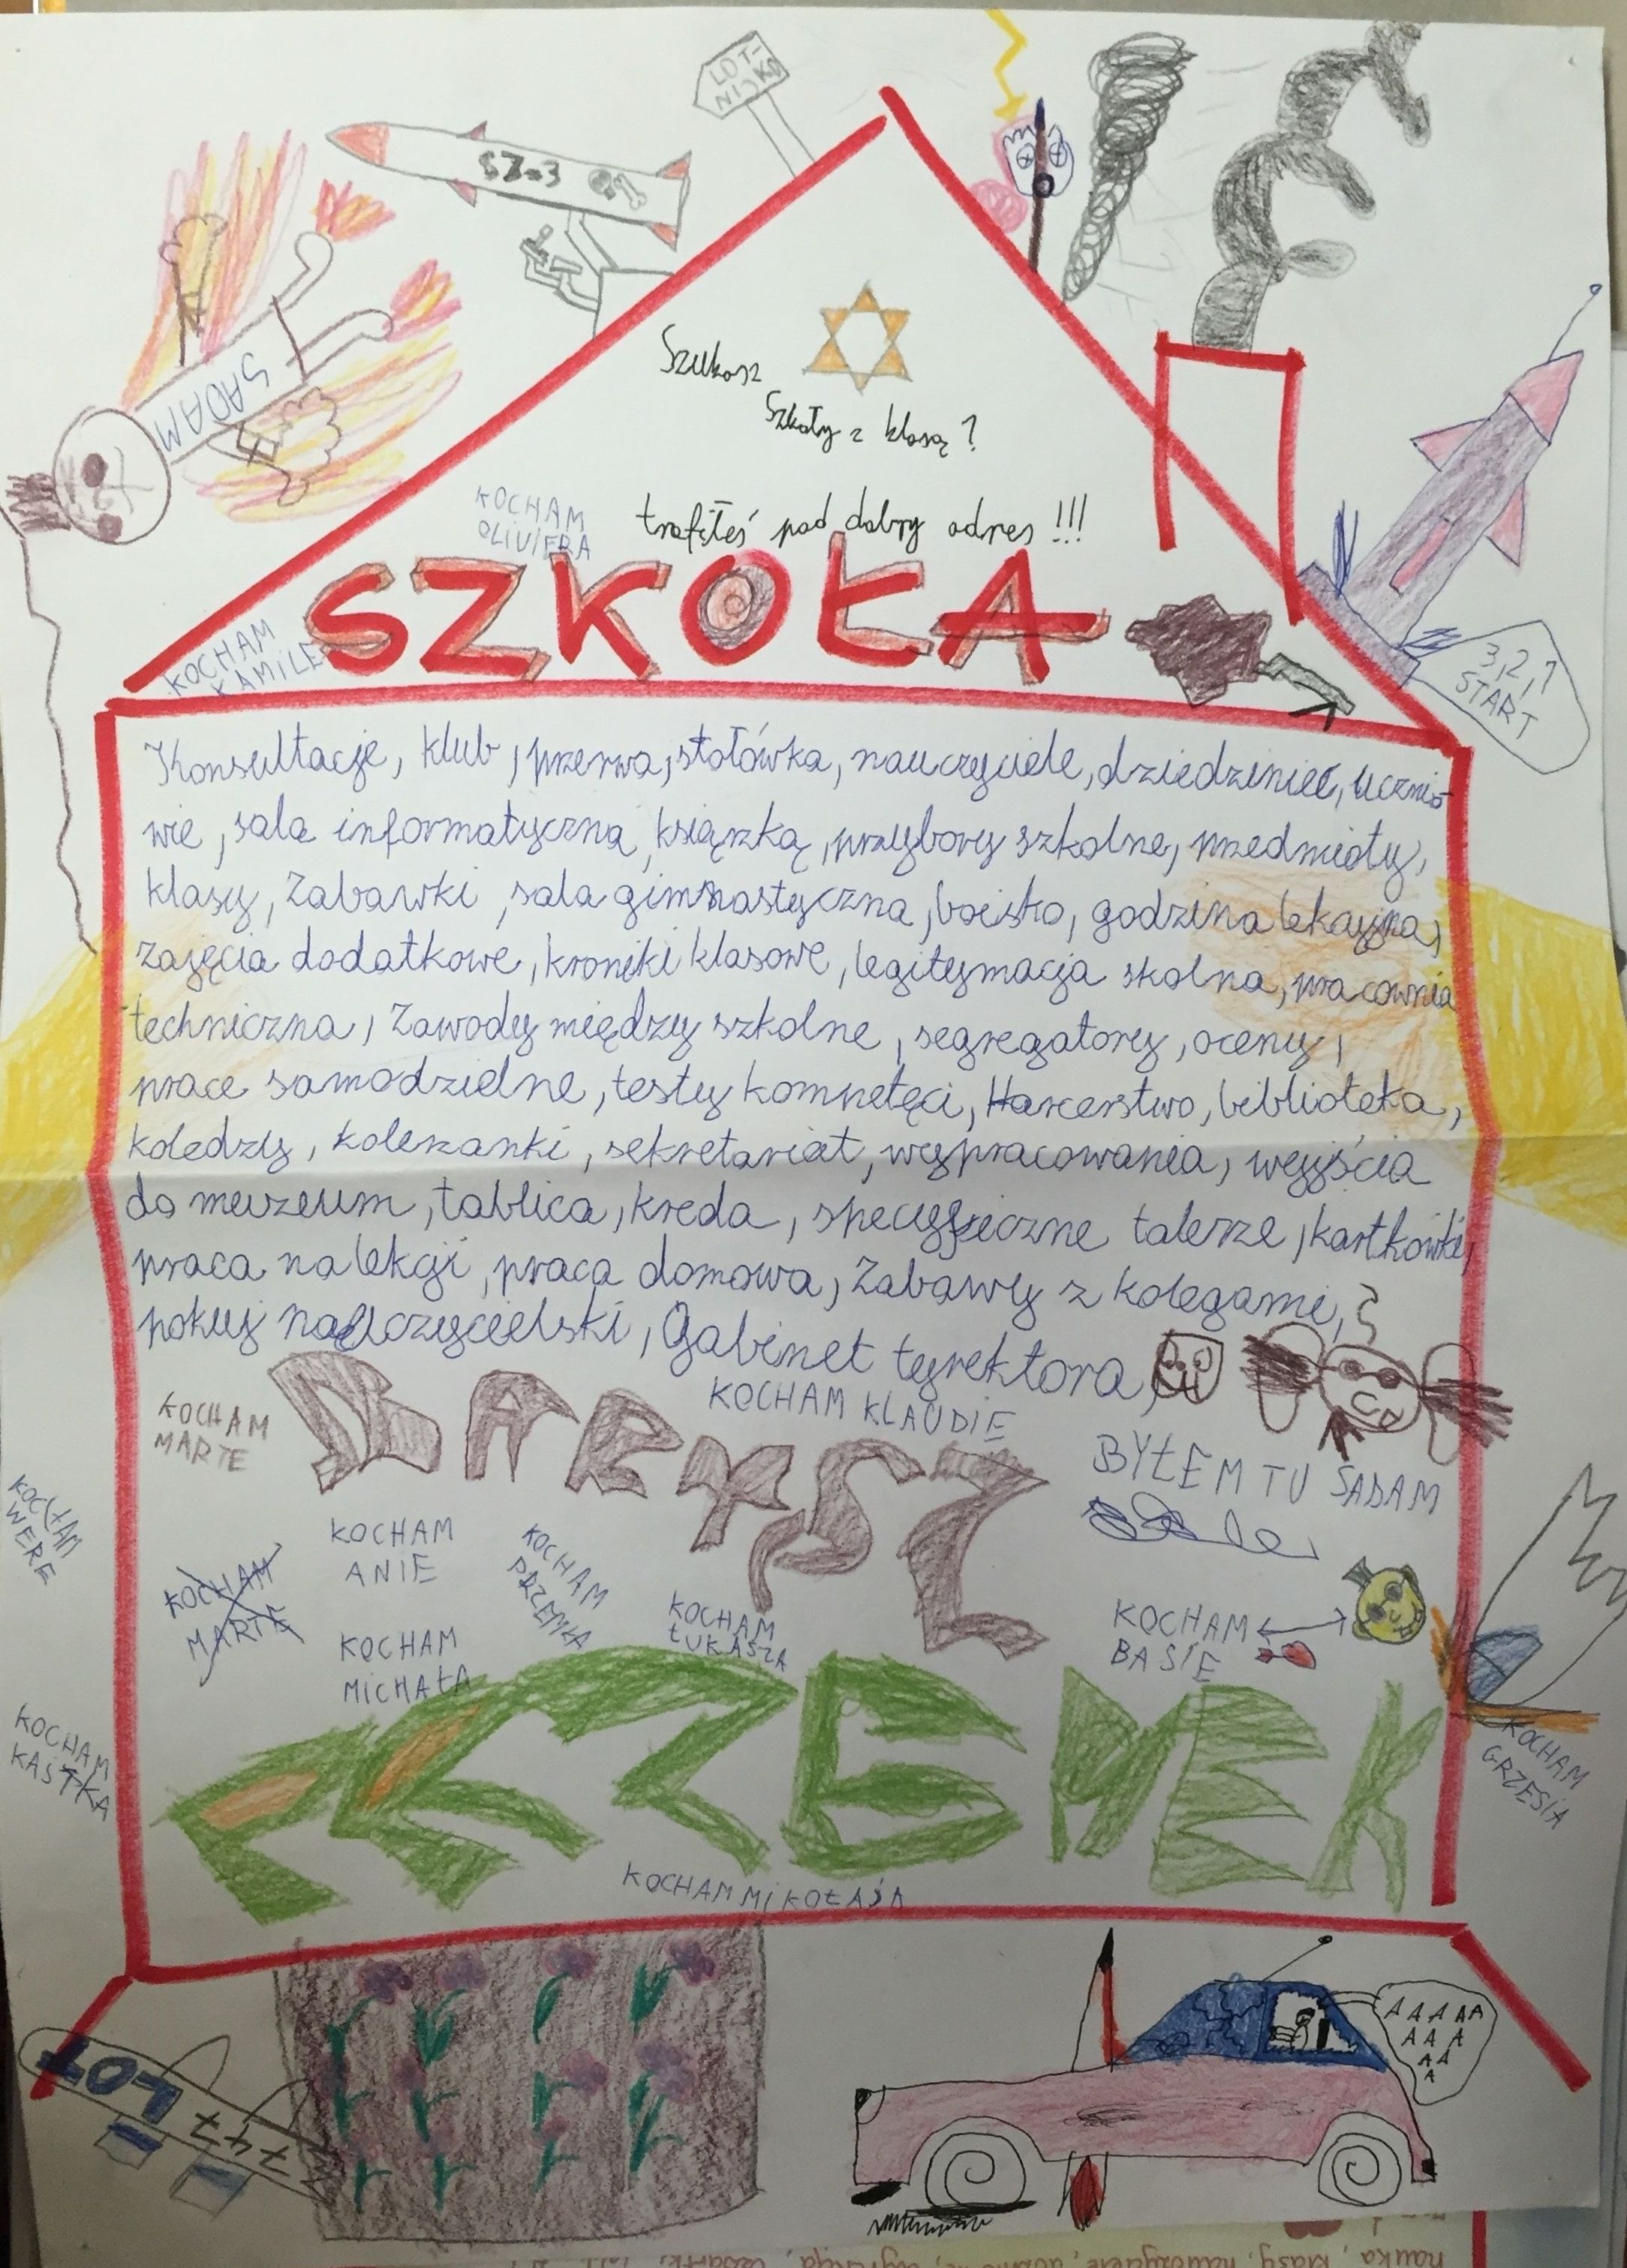 LOT-
NISKO
SZ-3
SADAM
Szukasz
Szkoły z klasą?
trafiłeś pod dobry adres!!!
KOCHAM
OLIVIERA
SZKOŁA
KOCHAM
KAMILE
3,2,1
START
Konsultacje, klub, przerwa, stołówka, nauczyciele, dziedziniec, ucznio-
wie, sala informatyczna, książką, przybory szkolne, przedmioty,
klasy, Zabawki, sala gimnastyczna, boisko, godzina lekcyjna,
zajęcia dodatkowe, kroniki klasowe, legitymacja skolna, pracownia
techniczna, Zawody między szkolne, segregatory, oceny,
prace samodzielne, testy kompetęci, Harcerstwo, biblioteka,
koledzy, koleżanki, sekretariat, wypracowania, wyjścia
do muzeum, tablica, kreda, specyficzne talerze, kartkówki,
praca na lekcji, praca domowa, Zabawy z kolegami,
pokuj nauczycielski, Gabinet tyrektora,
KOCHAM
MARTE
KOCHAM KLAUDIE
BYŁEM TU SADAM
KOCHAM
WERE
KOCHAM
ANIE
KOCHAM
PRZEMKA
KOCHAM
MARTE
KOCHAM
MICHAŁA
KOCHAM
ŁUKASZA
KOCHAM
BASIE
KOCHAM
KAŚTKA
KOCHAM
GRZESIA
KOCHAM MIKOŁAJA
LOT
747
AAAAA
AAA
AA
A